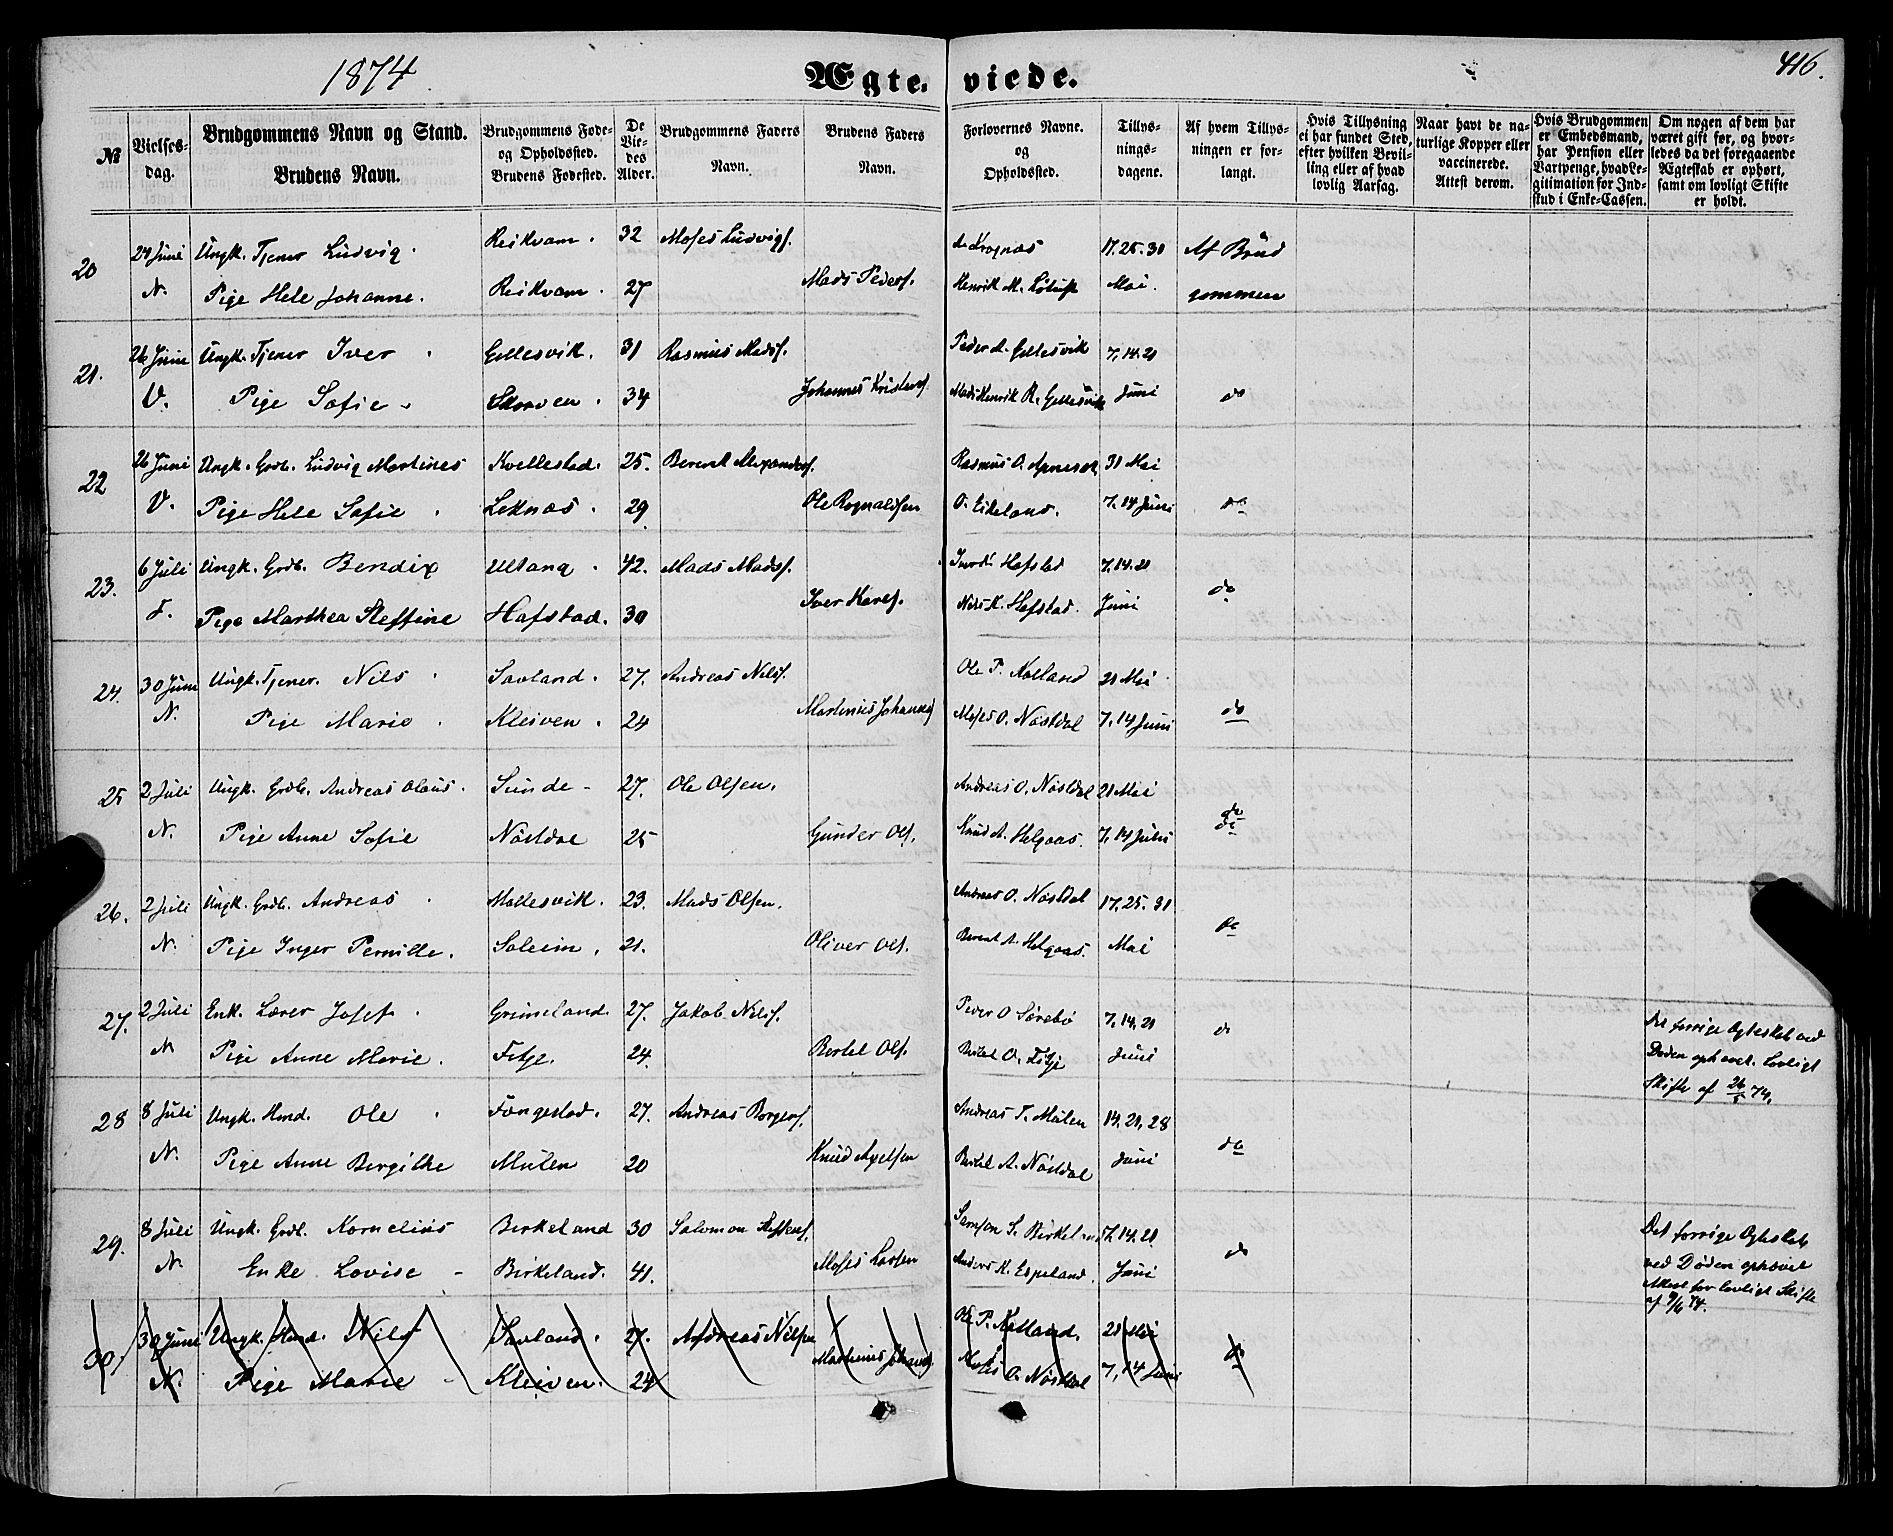 1874
Ægteviede.
416.
№
Vielses-dag.
Brudgommens Navn og Stand. Brudens Navn.
Brudgommens Føde- og Opholdssted. Brudens Fødested.
De Vie-des Alder.
Brudgommens Faders Navn.
Brudens Faders Navn.
Forlovernes Navne. og Opholdssted.
Tillys-nings-dagene.
Af hvem Tillys-ningen er for-langt.
Hvis Tillysning ei har fundet Sted, efter hvilken Bevil-ling eller af hvad lovlig Aarsag.
Naar havt de na-turlige Kopper eller vaccinerede. Attest derom.
Hvis Brudgommen er Embedsmand, har Pension eller Vartpenge, hvad Le-gitimation for Ind-skud i Enke-Cassen.
Om nogen af dem har været gift før, og hvor-ledes da det foregaaende Ægteskab er ophørt, samt om lovligt Skifte er holdt.
20 24 Juni Ungk. Tjener Ludvig. Reikvam. 32 Moses Ludvigs. 17. 25. 31 Af Brud
N. Pige Hele Johanne. Reikvam. 27 Mads Peders. Henrik M. Mai. gommen
21. 26 Juni Ungk. Tjener Iver Gellesvik. 31 Rasmus Mads. Peder A. Gellesvik 7. 14. 21
V. Pige Sofie Skorven. 34 Johannes Kristens. Mads Henrik R. Gellesvik Juni do
22 26 Juni Ungk. Grdb. Ludvig Martines Kvellestad. 25. Berent Alexanders. Rasmus O. 31 Mai
V. Pige Hele Sofie Leknæs. 29 Ole Rognaldsen O. Eikeland. 7. 14 Juni do
23. 6 Juli Ungk. Grdb. Bendix Ullang 42. Mads Mads. Hafstad 7. 14. 21
F. Pige Marthea Steffine Hafstad. 30 Iver Kares. Nils K. Hafstad. Juni do
24. 30 Juni Ungk. Tjener. Nils Savland. 27. Andreas Nils. Ole P. Kalland 21 Mai
N. Pige Marie Kleiven. 24 Martinius Johannes Moses O. Nøstdal 7, 14 Juni do
25 2 Juli Ungk. Grdb. Andreas Olaus. Sunde 27. Ole Olsen. Andreas O. Nøstdal 21 Mai
N. Pige Anne Sofie Nøstdal 25 Gunder Ols. Knud A. Helgaas. 7, 14 Juni do
26. 2 Juli Ungk. Grdb. Andreas Mallesvik. 23. Mads Olsen. Andreas O. Nøstdal 17. 25. 31
N. Pige Inger Pernille. Soleim. 21. Oliver Ols. Berent A. Helgaas. Mai do
27. 2 Juli Enk. Lærer Josef Grimeland. 27. Jakob Nils. Peder O Sørebø 7, 14, 21 Det forrige Egteskab ved
N Pige Anne Marie. Fitje. 24. Bertel Ols. Bertel O. Fitje Juni do Døden ophævet. Lovligt
Skifte af 26/5 74.
28 8 Juli Ungk. Hmd. Ole Fængestad. 27. Andreas Borgers. Andreas T. Mulen 14. 21, 28
N. Pige Anne Bergithe Mulen 20 Knud Axelsen Bertel A. Nøstdal Juni do
29. 8 Juli Ungk. Grdb. Kornelius Birkeland 30 Salomon Steffens. Samson S. Birkeland 7, 14. 21. Det forrige Egteskab
N. Enke Lovise Birkeland. 41. Moses Larsen Anders K. Espeland. Juni do ved Døden ophævet
Attest for lovligt Skifte
af 9/6 74.
30. 30 Juni Ungk. Hmd. Nils Savland. 27. Andreas Nilsen Ole P. Kalland. 21 Mai
N. Pige Marie Kleiven. 24 Martinius Johannes Moses O. Nøstdal 7, 14 Juni do